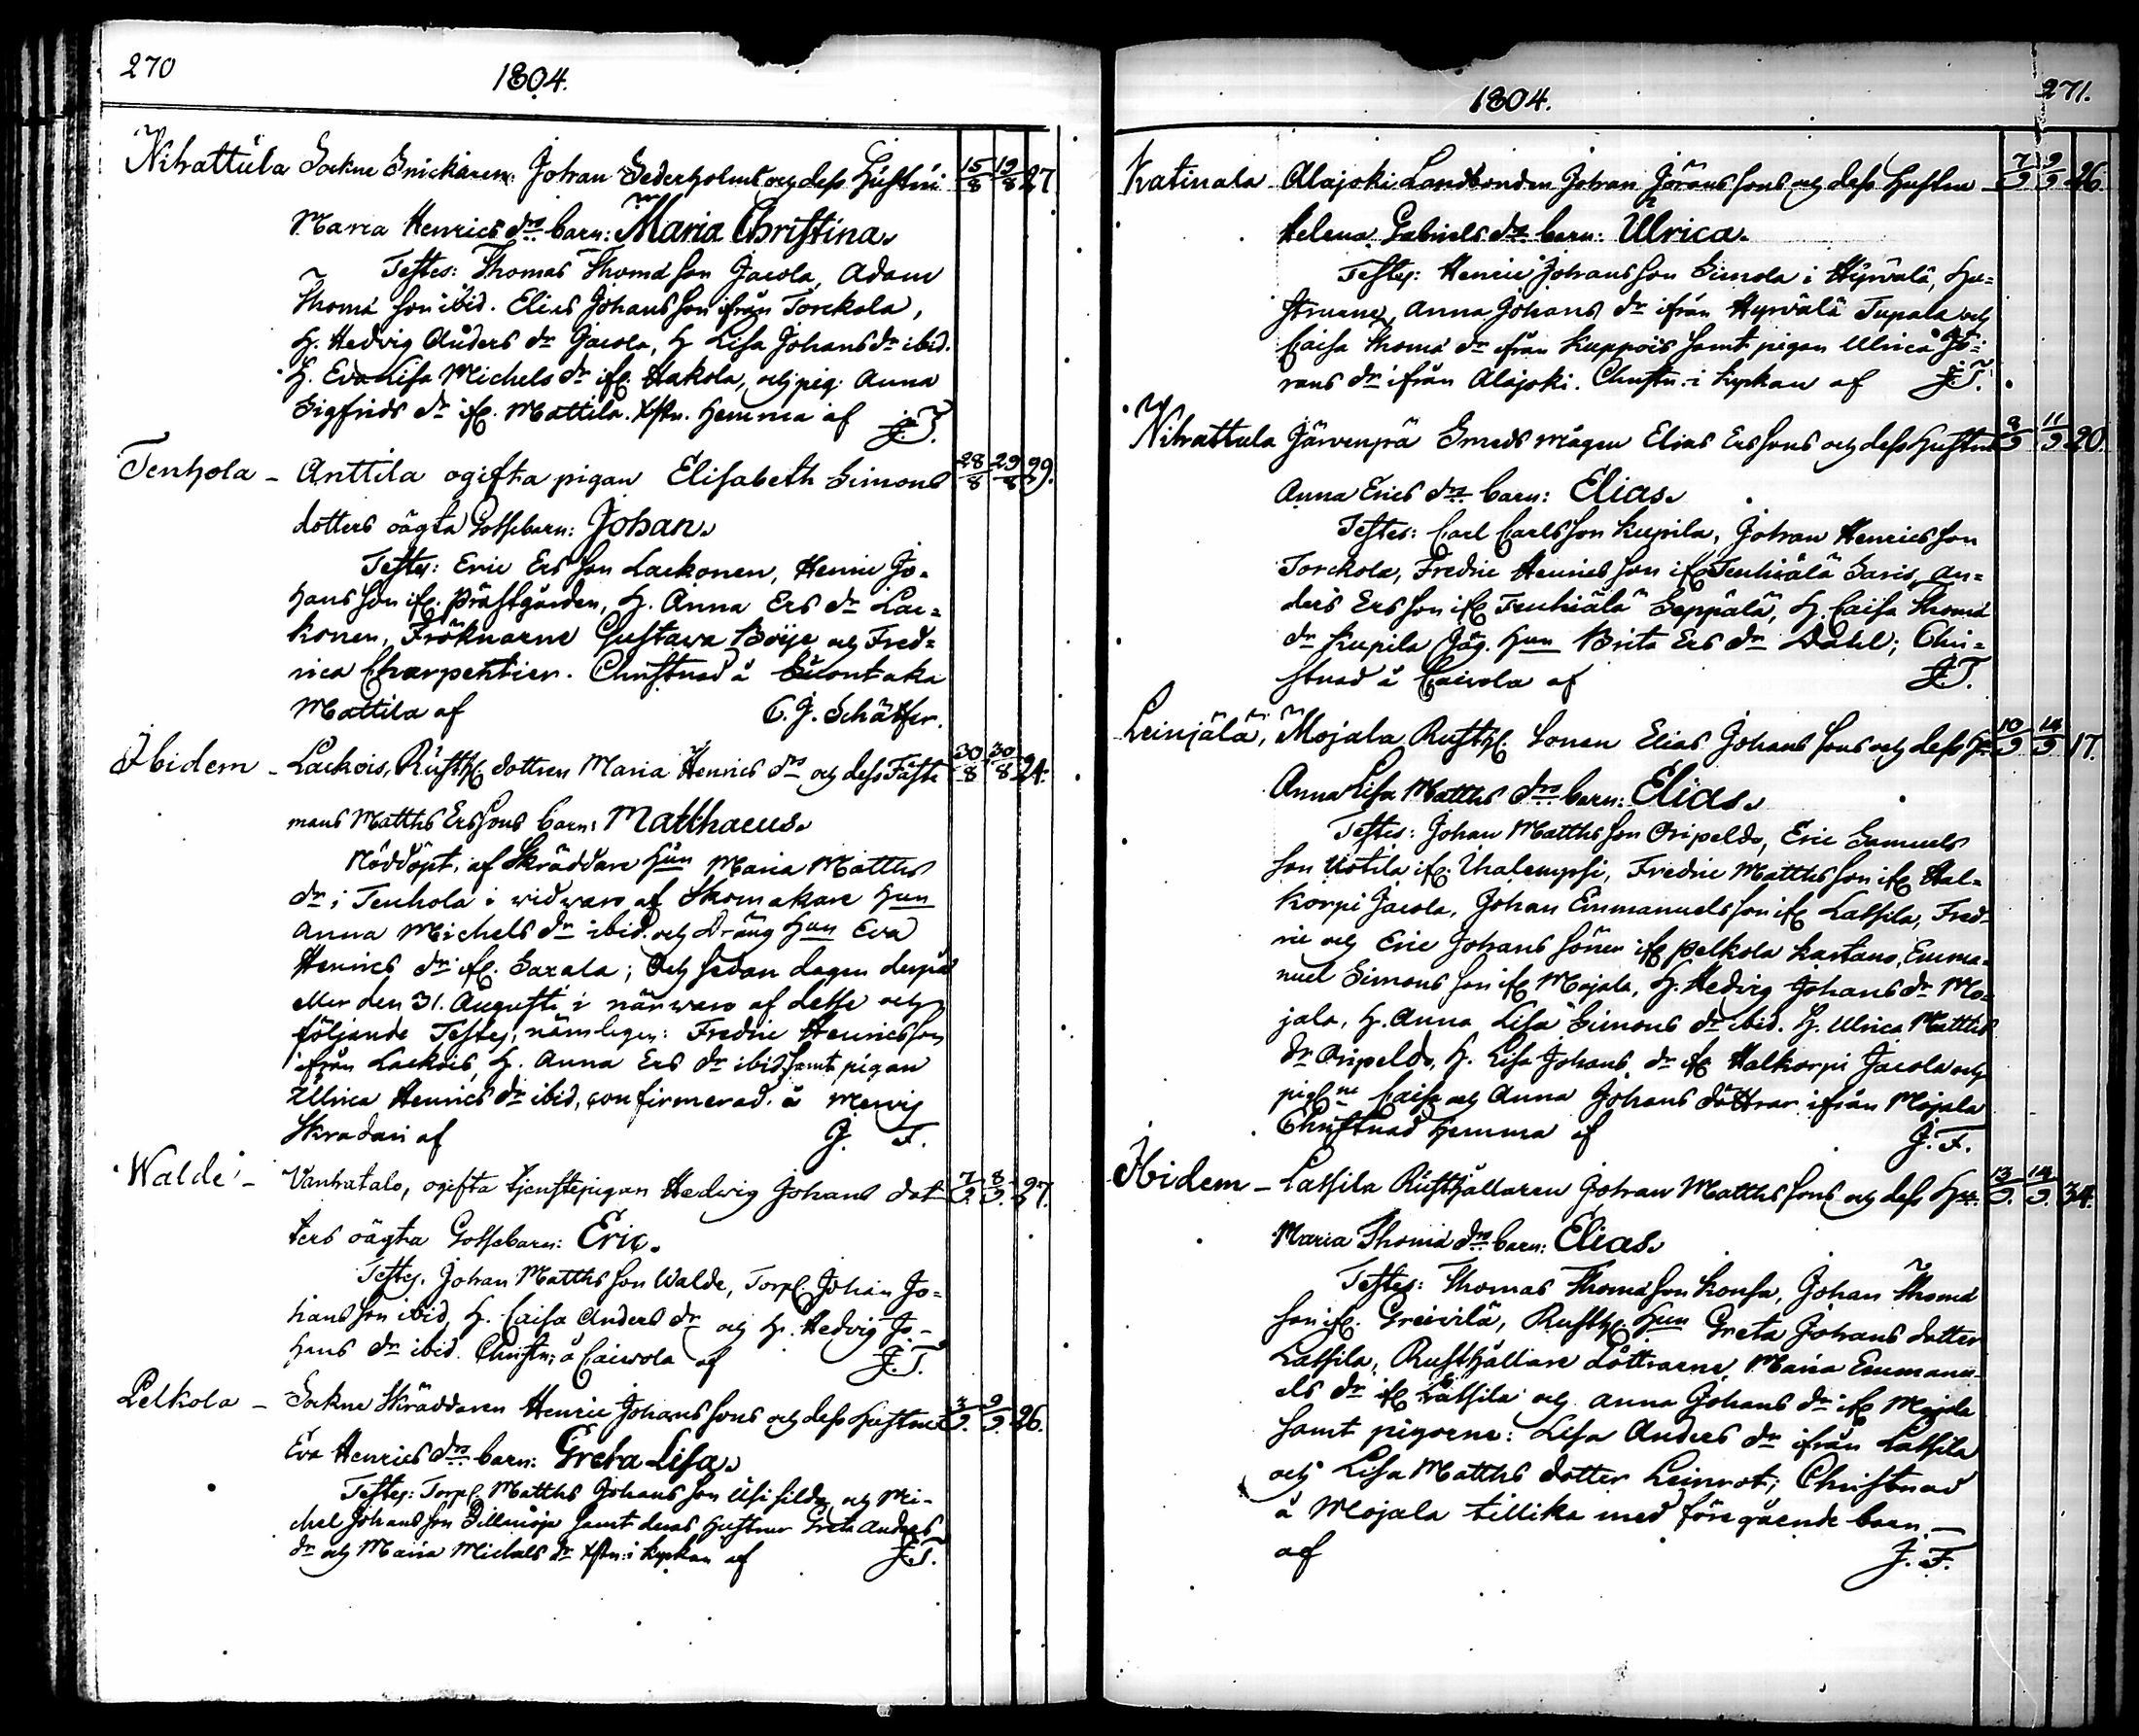 270
1804.
Nihattula Sockne Snickaren Johan Sederholms och dess Hustru 15/8 19/8 27
Maria Henrics drs barn: Maria Christina.
Testes: Thomas Thomä son Jacola, Adam
Thomä son ibid. Elias Johans son ifrån Torckola,
H. Hedvig Anders dr Jacola, H Lisa Johans dr ibid.
H. Eva Lisa Michels dr ifr. Hakola, och pig. Anna
Sigfrids dr ifr. Mattila. Xstn. hemma af J.T.
Tenhola - Anttila ogifta pigan Elisabeth Simons 28/8 29/8 29.
dotters oägta Gossebarn: Johan.
Testes: Eric Ers son Lackonen, Henric Jo-
hans son ifr. Prästgården, H. Anna Ers dr Lac-
konen, Fröknarne Gustava Boije och Fred-
rica Charpentier. Christnad å Suontaka
Mattila af C. J. Schäffer.
Ibidem - Lackois, Rusth. dottren Maria Henrics drs och dess Fäste 30/8 30/8 24.
mans Matths Ers sons barn: Matthaeus.
Nöddöpt, af Skräddare Hun Maria Matths
dr i Tenhola i widwaro af Skomakare Hun
Anna Michels dr ibid. och Dräng Hun Eva
Henrics dr ifr. Saxala; Och sedan dagen derpå
eller den 31. Augusti i närwaro af desse och
följande Testes, nämligen: Fredric Henrics son
ifrån Lackois, H. Anna Ers dr ibid, samt pigan
Ulrica Henrics dr ibid, confirmerad å Mervi
Skradari af J. F.
Walde - Vanhatalo, ogifta tjenstepigan Hedwig Johans dot- 7/9. 8/9. 27.
ters oägta Gossebarn: Eric.
Testes. Johan Matths son Walde, Torp. Johan Jo-
hans son ibid, H. Caisa Anders dr och H. Hedvig Jo-
hans dr ibid. Christn: å Caiwola af J.T.
Pelkola - Sockne Skräddaren Henric Johans sons och dess Hustrus 3/9. 9/9. 26.
Eva Henrics drs barn: Greta Lisa.
Testes: Torp. Matths Johans son och Mi-
chel Johans son samt deras Hustrur Greta Anders
dr och Maria Michels dr Xstn. i Kyrkan af J.T.
1804.
271.
Katinala Alajoki Landbonden Johan Jörans sons och dess Hustru 7/9 9/9 26.
Helena Gabriels drs barn: Ulrica.
Testes: Henric Johans son Simola i Hyrvälä, Hu-
strurne, Anna Johans dr ifrån Hyrvälä Tupala och
Caisa Thomä dr ifrån Kuppois samt pigan Ulrica Jö-
rans dr ifrån Alajoki. Christn. i Kyrkan af J.T.
Nihattula Järvenpä Smeds mågen Elias Ers sons och dess Hustrus 9/9 11/9 20.
Anna Erics drs barn: Elias.
Testes: Carl Carls son Kupila, Johan Henrics son
Torckola, Fredric Henrics son ifr. Tenhiälä Saris, An-
ders Ers son ifr Tenhiälä Seppälä, H. Caisa Thomä
dr Kupila Jäg. Hun Brita Ers dr Dahl; Chri-
stnad å Caivola af J.T.
Leinjälä, Mojala Rusth. Sonen Elias Johans sons och dess H: 10/9 14/9 17.
Anna Lisa Matths drs barn: Elias.
Testes: Johan Matths son Oripeldo, Eric Samuels
son Uotila ifr. Uhalempsi, Fredric Matths son ifr Hal-
korpi Jacola, Johan Emmanuels son ifr Lassila, Fred-
ric och Eric Johans söner ifr Pelkola Kartano, Emma-
nuel Simons son ifr Mojala, H. Hedvig Johans dr Mo-
jala, H. Anna Lisa Simons dr ibid. H. Ulrica Matths
dr Oripeldo, H. Lisa Johans dr ifr Halkorpi Jacola och
pig:ne Caisa och Anna Johans döttrar ifrån Mojala
Christnad hemma af J. F.
Ibidem - Lassila Rusthållaren Johan Matths sons och dess Hu. 13/9. 14/9. 34.
Maria Thomä drs barn: Elias.
Testes: Thomas Thomä son Konsa, Johan Thomä
son ifr. Greivilä, Rusth. Hun Greta Johans dotter
Lassila, Rusthållare döttrarne Maria Emmanu-
els dr ifr Lassila och Anna Johans dr ifr Mojala
samt pigorne: Lisa Anders dr ifrån Lassila
och Lisa Matths dotter Leinrot; Christnad
å Mojala tillika med föregående barn. —
af J. F.